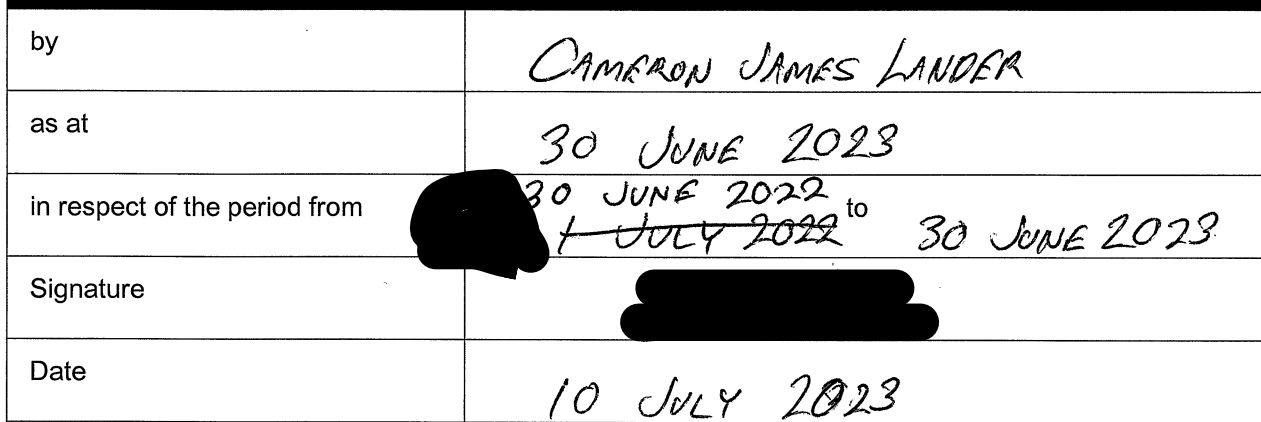 by CAMERON JAMES LANDER
as at 30 JUNE 2023
30 JUNE 2022
in respect of the period from 1 JULY 2022 to 30 JUNE 2023
Signature
Date 10 JULY 2023